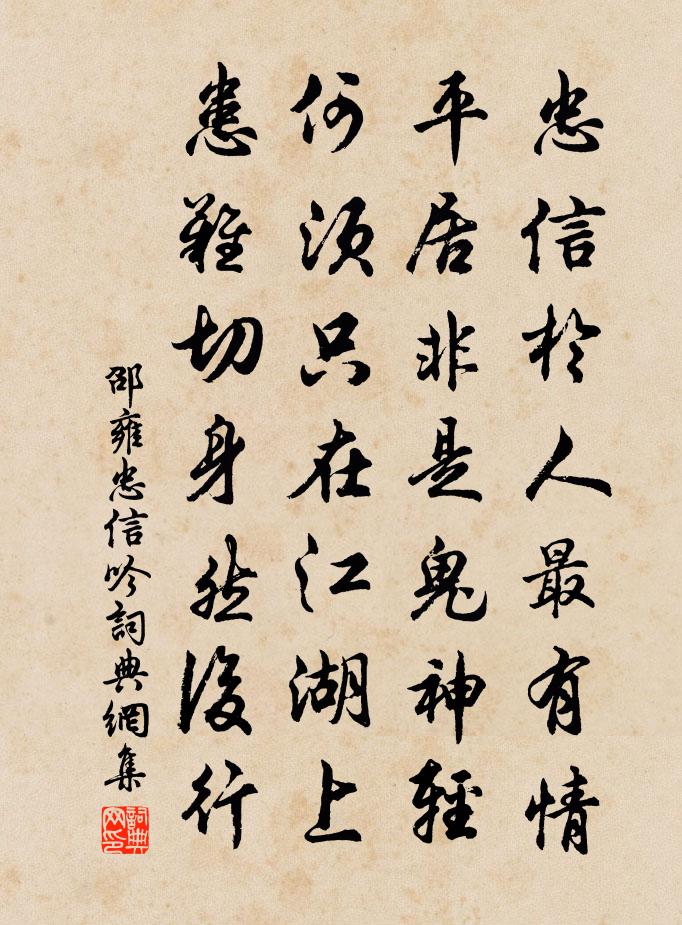 忠信於人最有情
平居非是鬼神輕
何須只在江湖上
患難切身然後行
邵雍忠信吟詞典網集
詞典网印